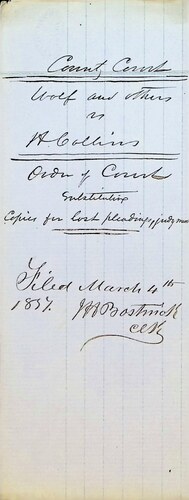 County Court
Wolf and others
vs
H Collins
Order of Court
Substituting
Copies for lost pleadings, judgment
Filed March 4th
1857. JH Bostwick
Clk